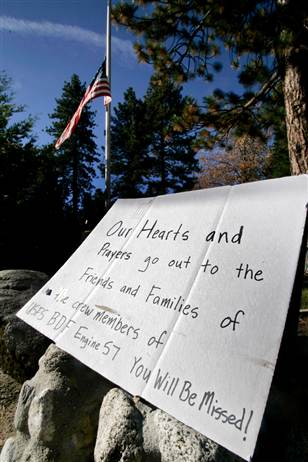 Our Hearts and
Prayers go out to the
Friends and Families of
the crew members of
USFS BDF Engine 57
You Will Be Missed!